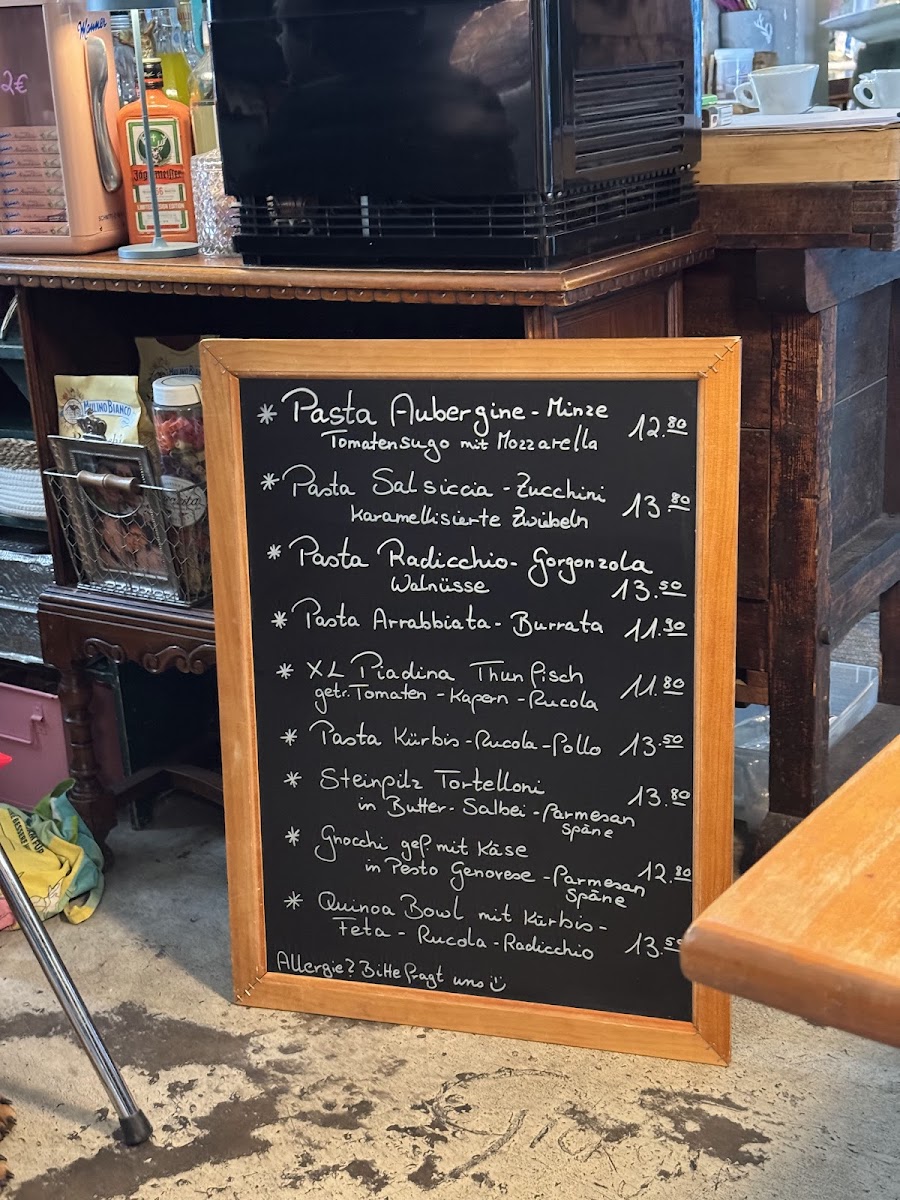 Manner
2€
Jägermeister
56
MULINO BIANCO
* Pasta Aubergine - Minze 12.80
Tomatensugo mit Mozzarella
* Pasta Salsiccia - Zucchini 13.80
Karamellisierte Zwiebeln
* Pasta Radicchio - Gorgonzola
Walnüsse 13.50
* Pasta Arrabbiata - Burrata 11.90
* XL Piadina Thunfisch 11.80
getr. Tomaten - Kapern - Rucola
* Pasta Kürbis - Rucola - Pollo 13.50
* Steinpilz Tortelloni 13.80
in Butter - Salbei - Parmesan
Späne
* Gnocchi gef. mit Käse 12.80
in Pesto Genovese - Parmesan
Späne
* Quinoa Bowl mit Kürbis -
Feta - Rucola - Radicchio 13.50
Allergie? Bitte fragt uns ü